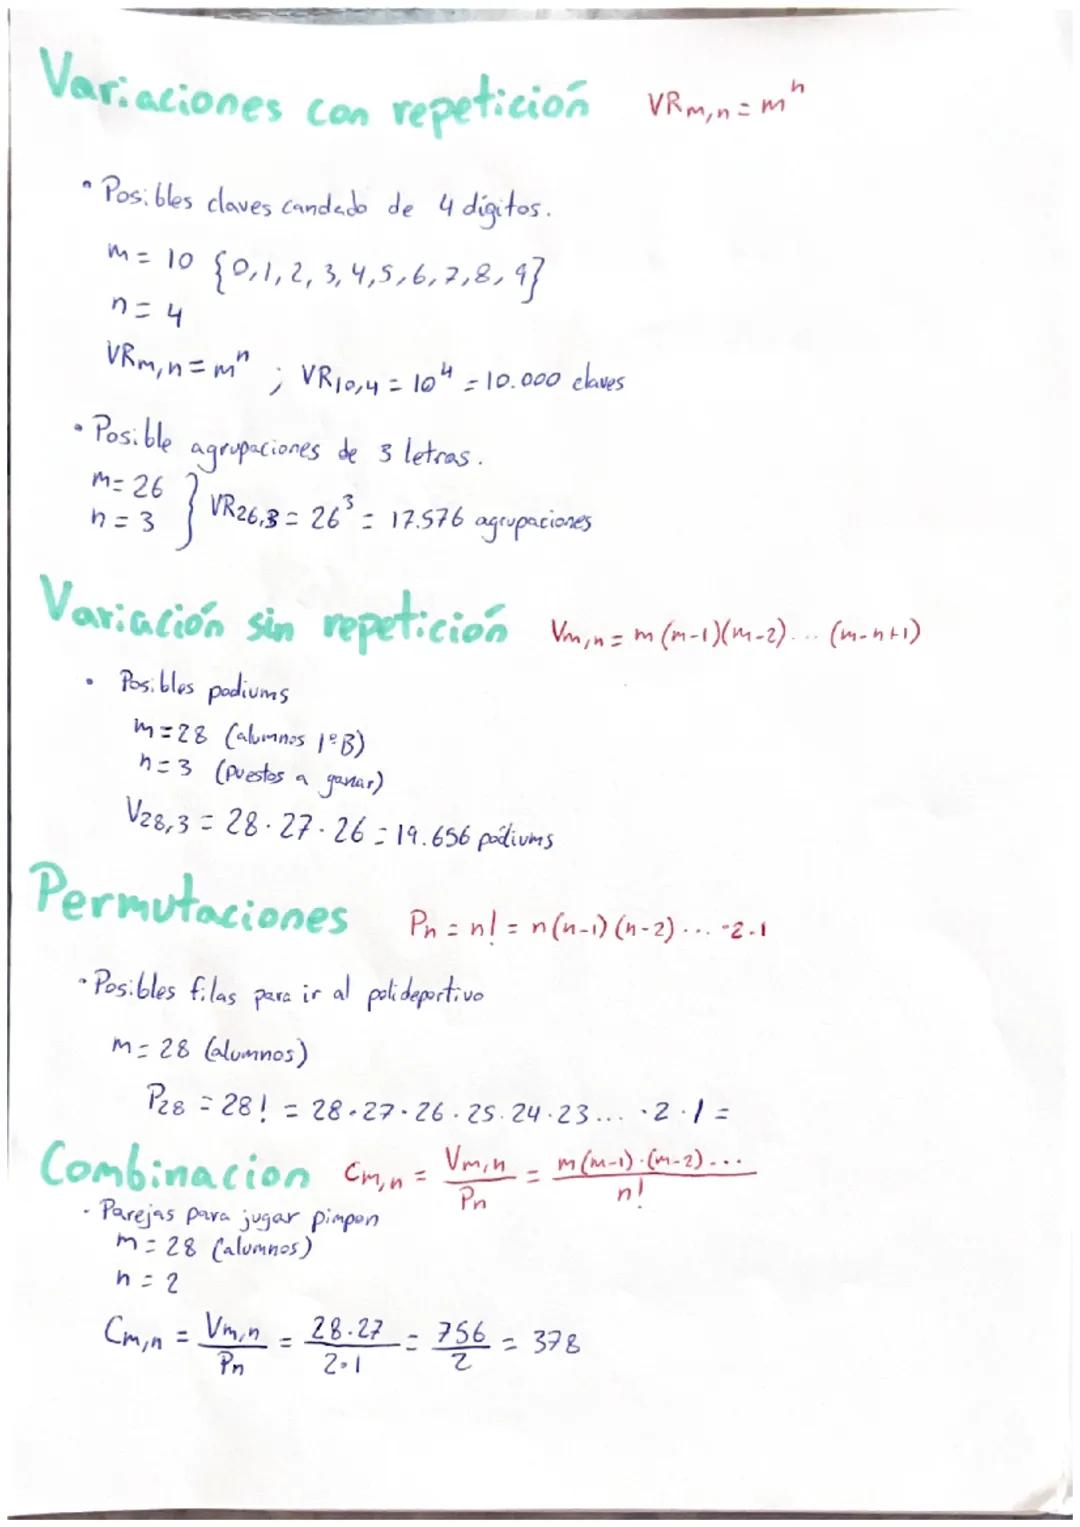 Variaciones con repetición VRm,n = mⁿ
• Posibles claves candado de 4 dígitos.
m = 10 {0,1,2,3,4,5,6,7,8,9}
n = 4
VRm,n = mⁿ ; VR10,4 = 10⁴ = 10.000 claves
• Posible agrupaciones de 3 letras.
m = 26
n = 3 } VR26,3 = 26³ = 17.576 agrupaciones
Variación sin repetición Vm,n = m(m-1)(m-2)... (m-n+1)
• Posibles podiums
m = 28 (alumnos 1ºB)
n = 3 (puestos a ganar)
V28,3 = 28·27·26 = 19.656 pódiums
Permutaciones Pn = n! = n(n-1)(n-2)... ·2·1
• Posibles filas para ir al polideportivo
m = 28 (alumnos)
P28 = 28! = 28·27·26·25·24·23... ·2·1 =
Combinacion Cm,n = Vm,n / Pn = m(m-1)·(m-2)... / n!
• Parejas para jugar pimpon
m = 28 (alumnos)
n = 2
Cm,n = Vm,n / Pn = 28·27 / 2·1 = 756 / 2 = 378